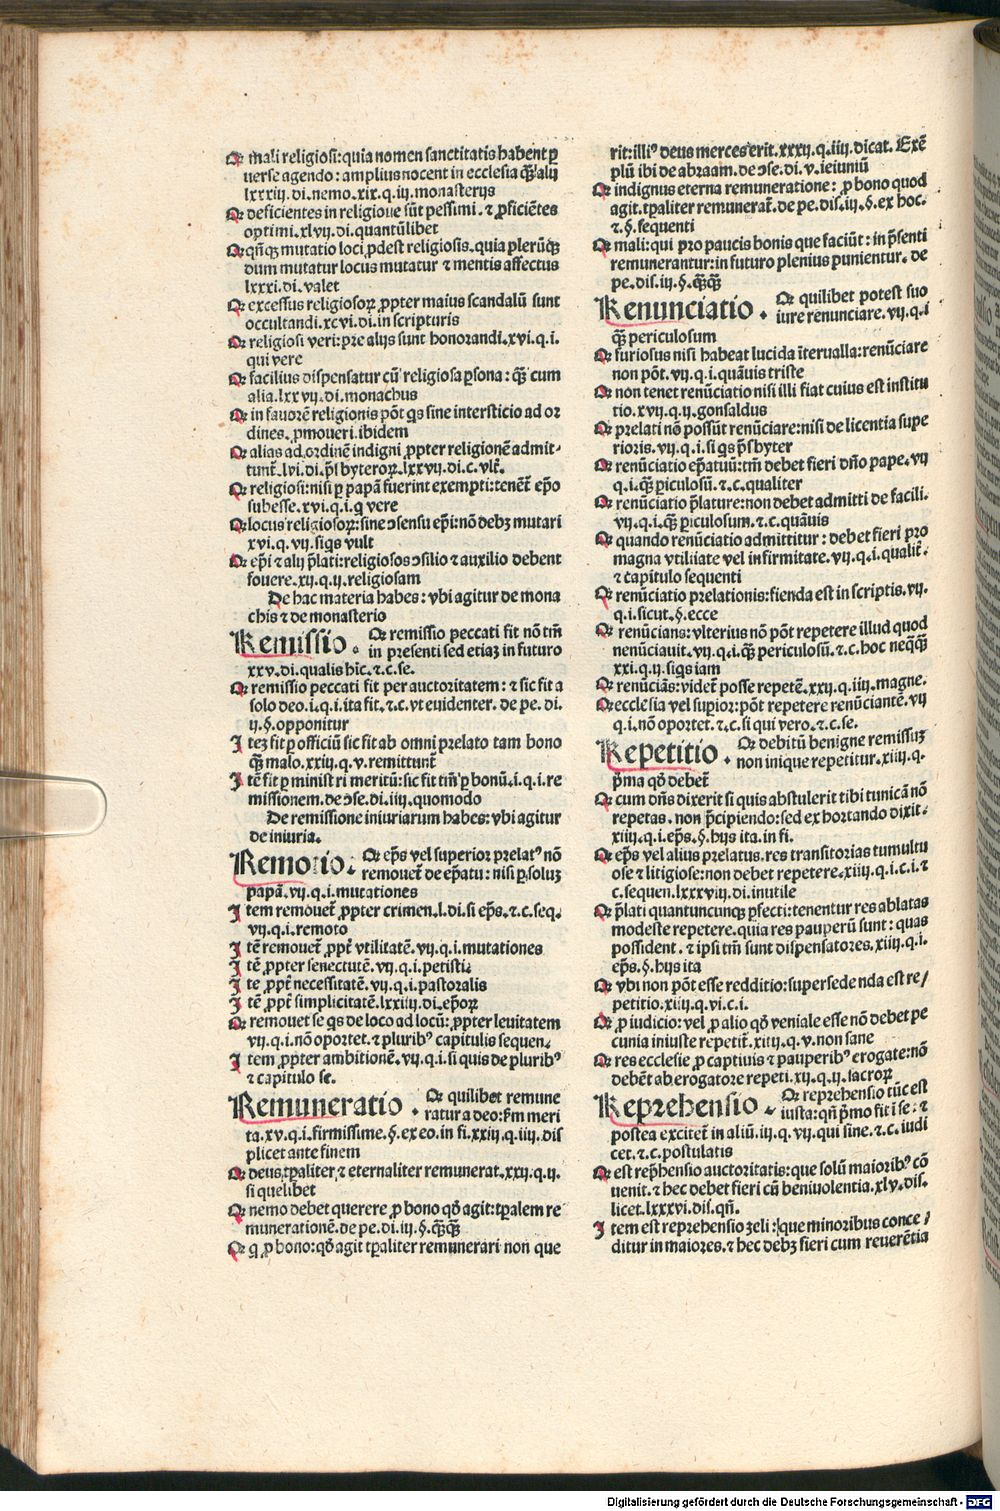 Qꝛ mali religiosi: quia nomen sanctitatis habent ꝑ
uerse agendo: amplius nocent in ecclesia ꝙ̃ alij
lxxxiij. di. nemo. xix. q. iij. monasterijs
Qꝛ deficientes in religione sũt pessimi. ⁊ ꝓficiẽtes
optimi. xlvij. di. quantũlibet
Qꝛ qñqꝫ mutatio loci ꝓdest religiosis. quia plerũqꝫ
dum mutatur locus mutatur ⁊ mentis affectus
lxxxi. di. valet
Qꝛ excessus religiosoꝝ ꝓpter maius scandalũ sunt
occultandi. xcvi. di. in scripturis
Qꝛ religiosi veri: pre alijs sunt honorandi. xvi. q. i.
qui vere
Qꝛ facilius dispensatur cũ religiosa ꝑsona: ꝙ̃ cum
alia. lxxvij. di. monachus
Qꝛ in fauorẽ religionis põt qs sine intersticio ad or
dines. ꝓmoueri. ibidem
Qꝛ alias ad ordinẽ indigni ꝓpter religionẽ admit-
tunt̃. lvi. di. p̃sbyteroꝝ. lxxvij. di. c. vlt̃.
Qꝛ religiosi: nisi ꝑ papã fuerint exempti: tenẽt ep̃o
subesse. xvi. q. i. q vere
Qꝛ locus religiosoꝝ: sine ↄsensu ep̃i: nõ debꝫ mutari
xvi. q. vij. siqs vult
Qꝛ ep̃i ⁊ alij p̃lati: religiosos ↄsilio ⁊ auxilio debent
fouere. xij. q. ij. religiosam
De hac materia habes: vbi agitur de mona
chis ⁊ de monasterio
Remissio. Qꝛ remissio peccati fit nõ tm̃
in presenti sed etiaꝫ in futuro
xxv. di. qualis hic̃. ⁊. c. se.
Qꝛ remissio peccati fit per auctoritatem: ⁊ sic fit a
solo deo. i. q. i. ita fit. ⁊. c. vt euidenter. de pe. di.
ij. §. opponitur
Iteꝫ fit ꝑ officiũ sic fit ab omni prelato tam bono
ꝙ̃ malo. xxiij. q. v. remittunt̃
Itẽ fit ꝑ ministri meritũ: sic fit tm̃ ꝑ bonũ. i. q. i. re
missionem. de ↄse. di. iiij. quomodo
De remissione iniuriarum habes: vbi agitur
de iniuria.
Remotio. Qꝛ ep̃s vel superior prelatꝰ nõ
remouet̃ de ep̃atu: nisi ꝑ soluꝫ
papã. vij. q. i. mutationes
Item remouet̃ ꝓpter crimen. l. di. si ep̃s. ⁊. c. seq.
vij. q. i. remoto
Itẽ remouet̃ ꝓpt̃ vtilitatẽ. vij. q. i. mutationes
Itẽ ꝓpter senectutẽ. vij. q. i. petisti.
Ite ꝓpt̃ necessitatẽ. vij. q. i. pastoralis
Itẽ ꝓpt̃ simplicitatẽ. lxxiiij. di. ep̃oꝝ
Qꝛ remouet se qs de loco ad locũ: ꝓpter leuitatem
vij. q. i. nõ oportet. ⁊ pluribꝰ capitulis sequen.
Item ꝓpter ambitionẽ. vij. q. i. si quis de pluribꝰ
⁊ capitulo se.
Remuneratio. Qꝛ quilibet remune
ratur a deo: ẜm meri
ta. xv. q. i. firmissime. §. ex eo. in fi. xxiij. q. iiij. dis
plicet ante finem
Qꝛ deus, tꝑaliter ⁊ eternaliter remunerat. xxij. q. ij.
si quelibet
Qꝛ nemo debet querere ꝓ bono qđ agit: tꝑalem re
munerationẽ. de pe. di. iij. §. ꝙ̃ꝙ̃
Qꝛ q ꝓ bono: qđ agit tꝑaliter remunerari non que
rit: illiꝰ deus merces erit. xxxij. q. iiij. dicat. Exẽ
plũ ibi de abraam. de ↄse. di. v. ieiuniũ
Qꝛ indignus eterna remuneratione: ꝓ bono quod
agit. tꝑaliter remunerat̃. de pe. dis. iij. §. ex hoc.
⁊. §. sequenti
Qꝛ mali: qui pro paucis bonis que faciũt: in p̃senti
remunerantur: in futuro plenius punientur. de
pe. dis. iij. §. ꝙ̃ꝙ̃
Renunciatio. Qꝛ quilibet potest suo
iure renunciare. vij. q. i
ꝙ̃ periculosum
Qꝛ furiosus nisi habeat lucida ĩterualla: renũciare
non põt. vij. q. i. quãuis triste
Qꝛ non tenet renũciatio nisi illi fiat cuius est institu
tio. xvij. q. ij. gonsaldus
Qꝛ prelati nõ possũt renũciare: nisi de licentia supe
rioris. vij. q. i. si qs p̃sbyter
Qꝛ renũciatio ep̃atuũ: tm̃ debet fieri dño pape. vij
q. i. ꝙ̃ ꝑiculosũ. ⁊. c. qualiter
Qꝛ renũciatio p̃lature: non debet admitti de facili.
vij. q. i. ꝙ̃ ꝑiculosum. ⁊. c. quãuis
Qꝛ quando renũciatio admittitur: debet fieri pro
magna vtilitate vel infirmitate. vij. q. i. qualit̃.
⁊ capitulo sequenti
Qꝛ renũciatio prelationis: fienda est in scriptis. vij.
q. i. sicut. §. ecce
Qꝛ renũcians: vlterius nõ põt repetere illud quod
renũciauit. vij. q. i. ꝙ̃ periculosũ. ⁊. c. hoc neqꝙ̃
xxi. q. ij. siqs iam
Qꝛ renũciãs: videt̃ posse repetẽ. xxij. q. iiij. magne.
Qꝛ ecclesia vel supior: põt repetere renũciantẽ. vij
q. i. nõ oportet. ⁊. c. si qui vero. ⁊. c. se.
Repetitio. Qꝛ debitũ benigne remissuꝫ
non inique repetitur. xiiij. q.
p̃ma qđ debet̃
Qꝛ cum dñs dixerit si quis abstulerit tibi tunicã nõ
repetas. non p̃cipiendo: sed exhortando dixit.
xiiij. q. i. ep̃s. §. hijs ita. in fi.
Qꝛ ep̃s vel alius prelatus. res transitorias tumultu
ose ⁊ litigiose: non debet repetere. xiiij. q. i. c. i. ⁊
c. sequen. lxxxviij. di. inutile
Qꝛ p̃lati quantuncunqꝫ ꝑfecti: tenentur res ablatas
modeste repetere. quia res pauperũ sunt: quas
possident. ⁊ ipsi tm̃ sunt dispensatores. xiiij. q. i.
ep̃s. §. hijs ita
Qꝛ vbi non põt esse redditio: supersedenda est re/
petitio. xiiij. q. vi. c. i.
Qꝛ ꝓ iudicio: vel ꝓ alio qđ veniale esse nõ debet pe
cunia iniuste repetit̃. xiiij. q. v. non sane
Qꝛ res ecclesie ꝓ captiuis ⁊ pauperibꝰ erogate: nõ
debẽt ab erogatore repeti. xij. q. ij. sacroꝝ
Reprehensio. Qꝛ reprehensio tũc est
iusta: qñ p̃mo fit ĩ se: ⁊
postea excitet̃ in aliũ. iij. q. vij. qui sine. ⁊. c. iudi
cet. ⁊. c. postulatis
Qꝛ est rep̃hensio auctoritatis: que solũ maioribꝰ cõ
uenit. ⁊ hec debet fieri cũ beniuolentia. xlv. dis.
licet. lxxxvi. dis. qñ.
Item est reprehensio zeli: que minoribus conce/
ditur in maiores. ⁊ hec debꝫ fieri cum reuerẽtia
Digitalisierung gefördert durch die Deutsche Forschungsgemeinschaft - DFG